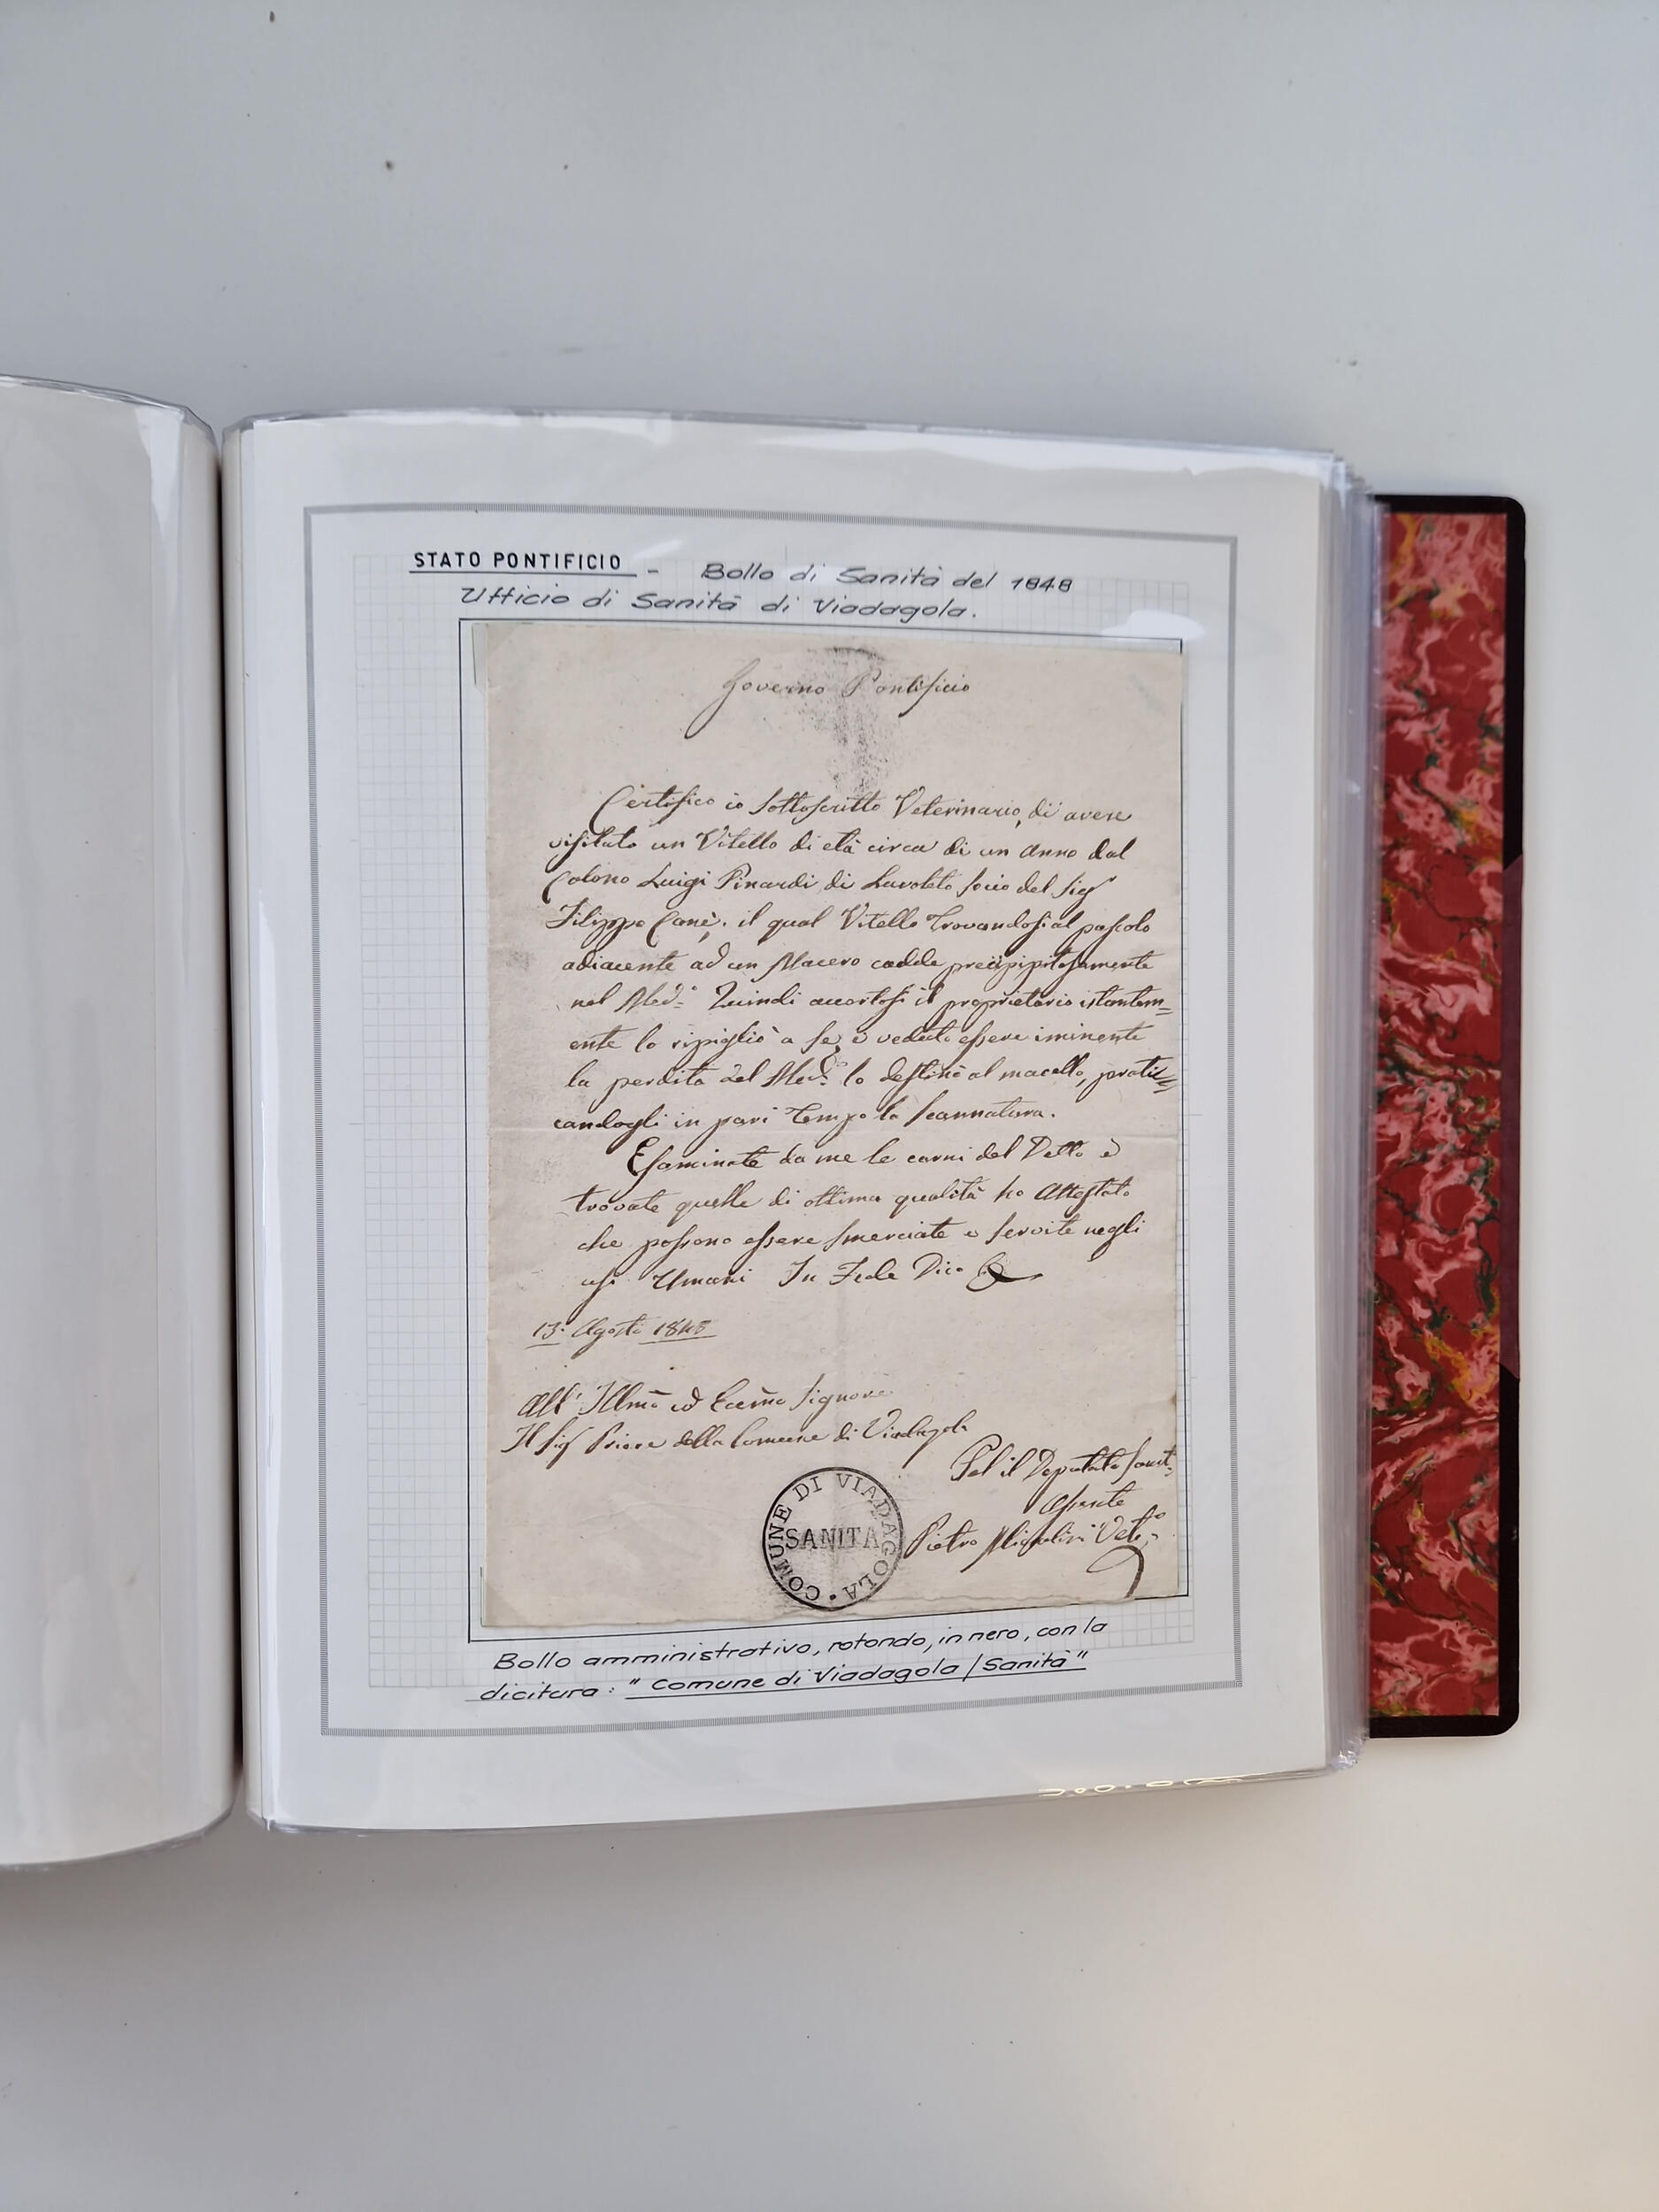 STATO PONTIFICIO - Bollo di Sanità del 1848
Ufficio di Sanità di Viadagola.
Governo Pontificio
Certifico io Sottoscritto Veterinario, di avere
visitato un Vitello di età circa di un anno dal
Colono Luigi Pinardi di socio del Sig
Filippo Canè. il qual Vitello trovandosi al pascolo
adiacente ad un Macero cadde
nel Med.º Quindi accortosi il proprietario istantem=
ente lo ripigliò a se, e veduto essere iminente
la perdita del Med.º lo destinò al macello, prati=
candogli in pari tempo la scannatura.
Esaminate da me le carni del Detto e
trovate quelle di ottima qualità ho Attestato
che possono essere smerciate e servite negli
usi Umani In Fede Dico
13. Agosto 1848
All' Illmo ed Eccmo Signore
Il Sig Priore della Comune di Viadagola
Pel il Deputato Sanit.
Assente
Pietro Vet.º
COMUNE DI VIADAGOLA •
SANITA
Bollo amministrativo, rotondo, in nero, con la
dicitura: " Comune di Viadagola / Sanità "